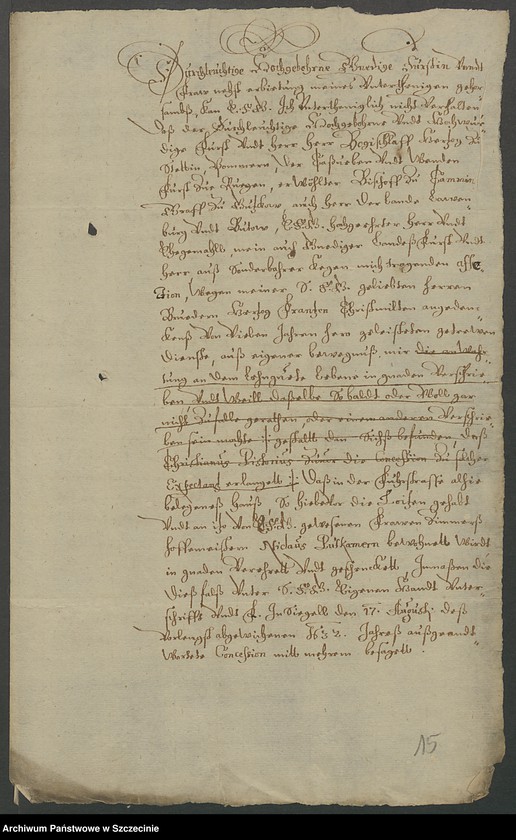 Durchleuchtige Hochgebohrne Gnedige Fürstin Undt
Fraw nehst erbietung meines Unterthenigen gehor-
sambß, Kan E. F. G. Ich Unterthenigklich nicht verhalten
daß der Durchleuchtige Hochgebohrne Undt Hochwür-
dige Fürst Undt herr herr Bogischlaff Hertzog Zu
Stettin, Pommern, der Caßuben Undt Wenden
Fürst Zue Ruegen, erwöhlter Bischoff Zu Cammin
Graff Zu Gutzkow auch herr der lande Lawen
burg Undt Bütow, E. F. G. hochgeehrter herr Undt
Ehegemahl, mein auch Gnediger Landeß Fürst Undt
herr auß Sonderbahrer Kegen mich tragenden affec
tion, Wegen meiner S. F. G. geliebten herren
Bruedern Hertzog Frantzen Christmilten angeden-
kenß Von Vielen Jahren hero geleisteten getrewen
dienste, auß eigener bewegnuß, mir die anwar-
tung an dem lehnguete lebene in gnaden Verschrie-
ben Undt Weill dasselbe So baldt oder Woll gar
nicht Zu falle gerathen, oder einem anderen Verschrie-
ben sein mochte gestalt dan Sichß befunden, daß
Christianus Pistorius Zuvor die Concession Zu solcher
Expectanz erlangett daß in der Fuhrstrasse alhie
belegeneß hauß So hiebevor die gehabt
Undt an itzo von E. F. G. gewesenen Frawen Zimmerß
hoffemeistern Niclauß Putkamern bewohnett Wirdt
in gnaden Verehrett Undt geschenckett, Inmaßen die
dießfalß Unter S. F. G. Eigenen Handt Unter-
schrifft Undt F. InSiegell den 17. Augustj deß
Vorlengst abgewichenen 1632. Jahreß außgeandt-
Wortete Concession mitt mehrem besagett.
15
Archiwum Państwowe w Szczecinie